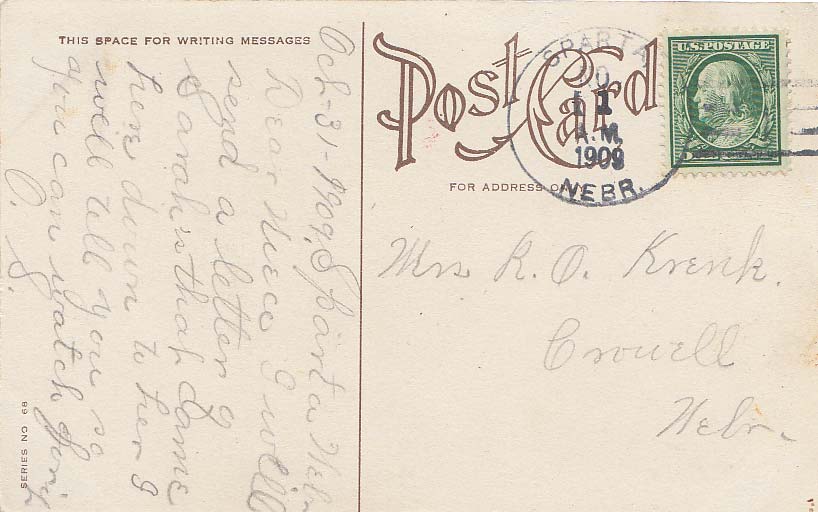 THIS SPACE FOR WRITING MESSAGES
Oct-31-1909, Sparta Neb.
Dear Niece I will
send a letter of
Sarah's that came
here down to her I
will tell you so
you can watch for it
O. S.
SERIES NO 68
Post Card
FOR ADDRESS ONLY
SPARTA
1
A.M.
1909
NEBR.
U.S. POSTAGE
Mrs R. O. Krenk.
Crowell
Nebr.